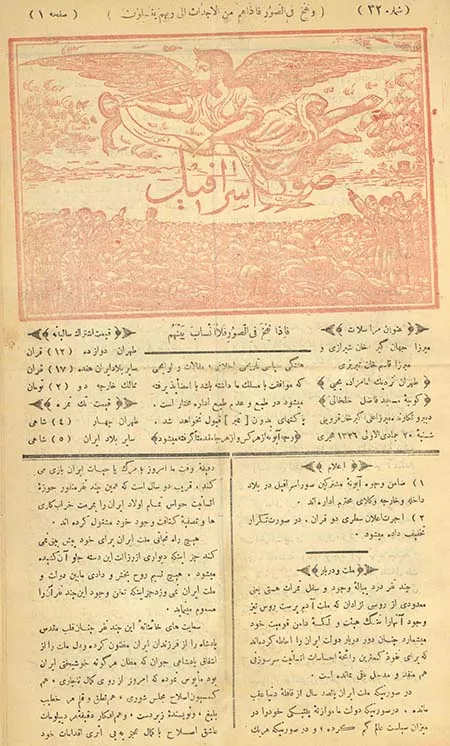 (شماره ۳۲)
( و نفخ فی الصور فاذاهم من الاجداث الی ربهم ینسلون )
( صفحه ۱ )
صور اسرافیل
عنوان مراسلات
میرزا جهان گیر خان شیرازی و
میرزا قاسم خان تبریزی
طهران نزدیک امامزاده یحیی
کوچه مسجد فاضل خلخالی
دبیر و نگارنده میرزا علی اکبر خان قزوینی
شنبه ۲۰ جمادی الاولی ۱۳۲۶ هجری
فاذا نفخ فی الصور فلا انساب بینهم
هفتگی سیاسی تاریخی اخلاقی ، مقالات و لوایحی
که موافق با مسلک ما داشته باشد با امضا پذیرفته
میشود در طبع و عدم طبع اداره مختار است .
پاکتهای بدون [ تمبر ] قبول نخواهد شد .
وجه آبونه از هر کس و از هر جا مقدمتا گرفته میشود
قیمت اشتراک سالیانه
طهران دوازده (۱۲) قران
سایر بلاد ایران هفده (۱۷) قران
ممالک خارجه دو (۲) تومان
قیمت تک نمره
طهران چهار (۴) شاهی
سایر بلاد ایران (۵) شاهی
اعلام
۱) ضامن وجوه آبونهٔ مشترکین صور اسرافیل در بلاد
داخله و خارجه وکلای محترم اداره اند .
۲) اجرت اعلان سطری دو قران . در صورت تکرار
تخفیف داده میشود .
ملت و دربار
چند نفر دزد پیالهٔ وجود و سفل ثمرات هستی یعنی
معدودی از روسی نژادان که ملت آدم پرست روس نیز
وجود آنها را ننگ هیئت و لکهٔ دامن قومیت خود
میشمارد چنان دور دربار دولت ایران را احاطه کرده‌اند
که برای نفوذ کمترین رائحهٔ احساسات انسانیت سر سوزنی
هم منفذ و مدخل باقی نمانده است .
در صورتیکه ملت ایران پانصد سال از قافلهٔ دنیا عقب
مانده . در صورتیکه دولت ما موازنهٔ پلتیکی خود را در
میزان سیاست عالم گم کرده ؛ و در صورتیکه هر یک
دقیقهٔ وقت ما امروز با مرک یا حیات ایران بازی می
کند ، قریب دو سال است که همین چند نفر منفور حوزهٔ
انسانیت حواس تمام اولاد ایران را بمرمت خرابکاری
ها و تصفیهٔ کثافت وجود خود مشغول کرده اند .
هیچ راه نجاتی ملت ایران برای خود پیش بینی نمی
کند جز اینکه دیواری از رذالت این دسته جلو آن کشیده
میشود . هیچ نسیم روح بخش و دادی مابین دولت و
ملت ایران نمی وزد جز اینکه تعفن وجود این چند نفر آنرا
مسموم مینماید .
سعایت های خائنانهٔ این چند نفر چنان قلب مقدس
پادشاه را از فرزندان ایران مظنون کرده و دل ملت را از
اشفاق پادشاهی جوان که مظان هر گونه خوشبختی ایران
بود مأیوس نموده که امروز از روی کمال ناچاری ، هم
کمسیون اصلاح مجلس شوری ، هم نطق و قلم هر خطیب
بلیغ ، و نویسندهٔ زبردست ، و هم افکار دقیقهٔ هر دیپلومات
عاشق اصلاح با کمال عجز به بی اثری اقدامات خود